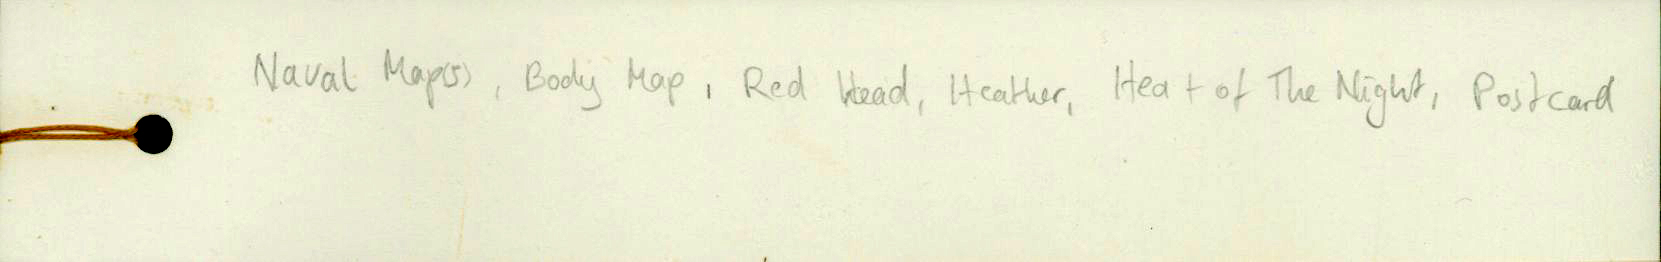 Naval Map(s), Body Map, Red Head, Heather, Heat of The Night, Postcard